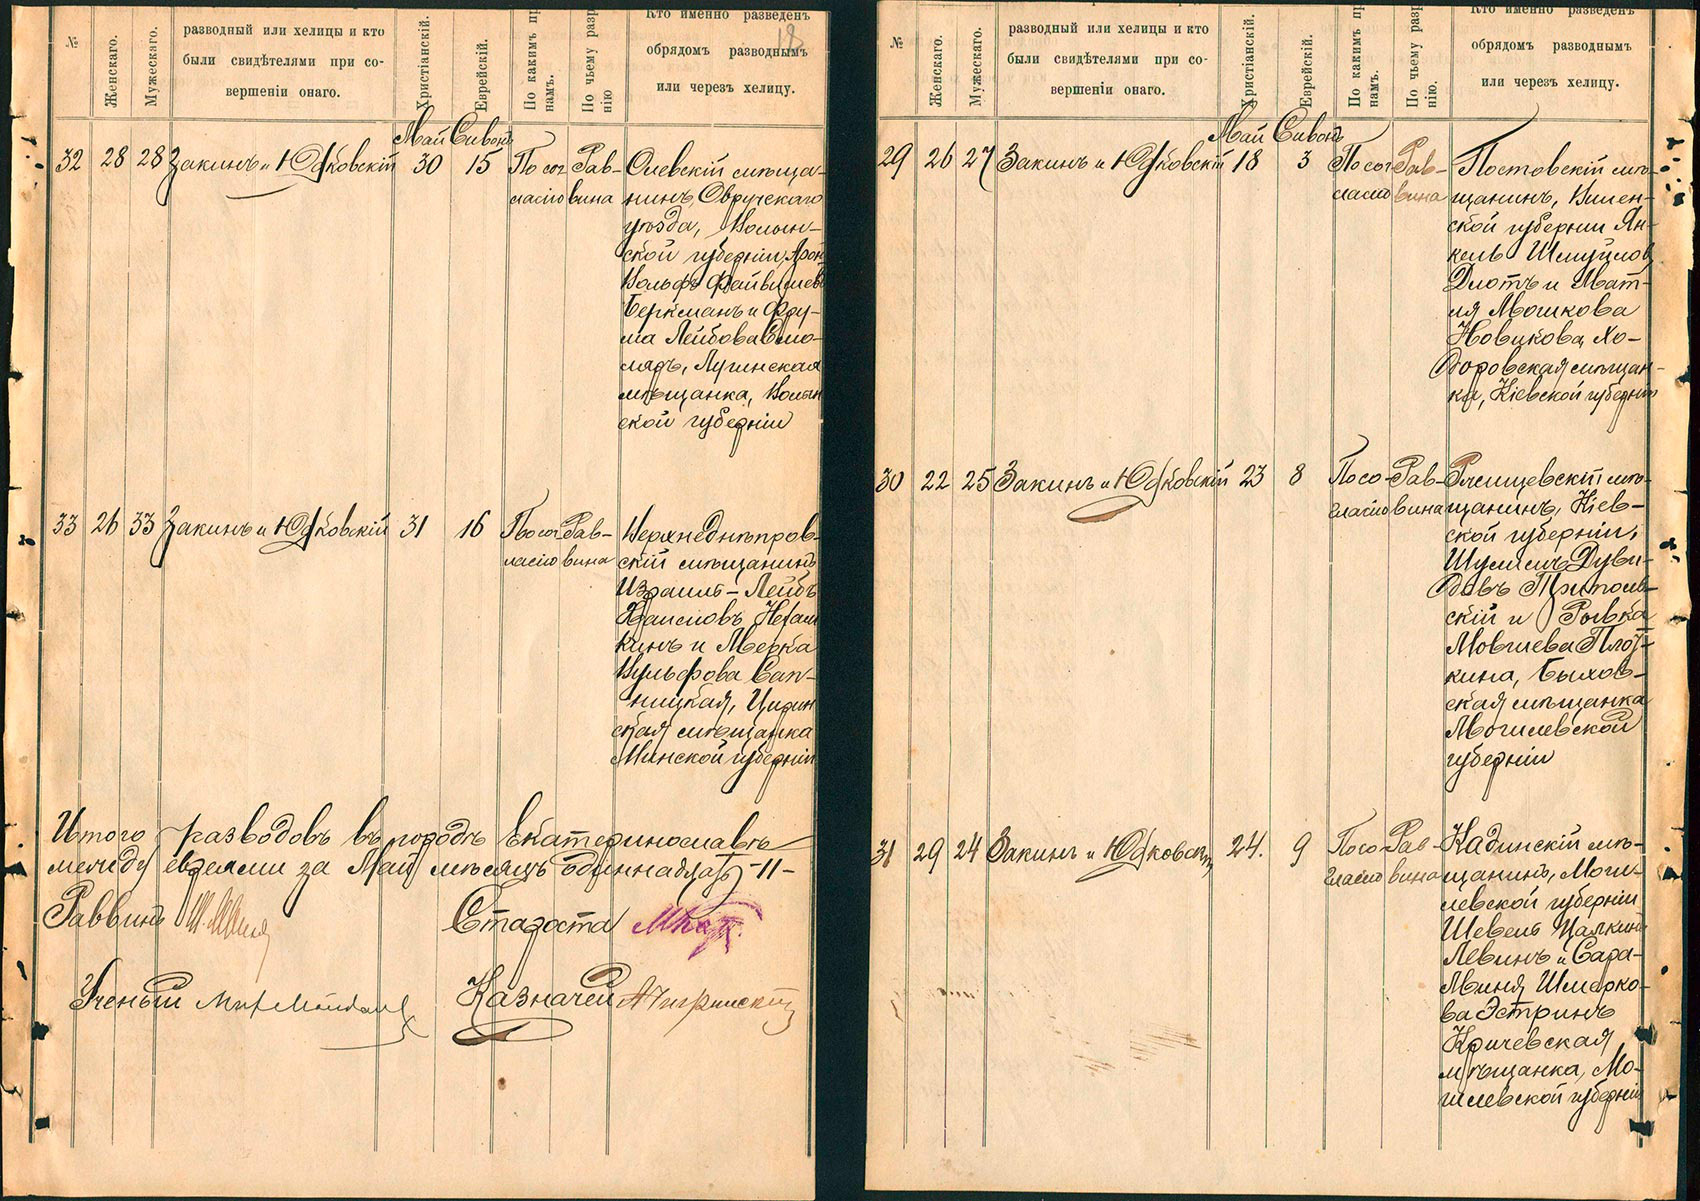 №
Женскаго.
Мужескаго.
разводный или хелицы и кто
были свидѣтелями при со-
вершеніи онаго.
Христіанскій.
Еврейскій.
По какимъ пр
намъ.
По чьему разр
нію
Кто именно разведенъ
обрядомъ разводнымъ
или черезъ хелицу.
18
Май Сивонъ
32 28 28 Закинъ и Юдковскій 30 15 По сог Рав-
ласію вина
Олевскій мѣща-
нинъ, Овручскаго
уѣзда, Волын-
ской губерніи, Арон
Вольфъ Файвишевъ
Беркманъ и Фру-
ма Лейбова Сто-
ляръ, Лугинская
мѣщанка, Волын
ской губерніи
33 26 33 Закинъ и Юдковскій 31 16 По сог Рав-
ласію вина
Верхнеднѣпров-
скій мѣщанинъ
Израиль-Лейбъ
Хаимовъ Нехам
кинъ и Мерка
Вульфова Сап-
ницкая, Цирин
ская мѣщанка
Минской губерніи
Итого разводовъ въ городѣ Екатеринославѣ
между евреями за Май мѣсяцъ одиннадцать -11-
Раввинъ
Староста
Ученый
Казначей
№
Женскаго.
Мужескаго.
разводный или хелицы и кто
были свидѣтелями при со-
вершеніи онаго.
Христіанскій.
Еврейскій.
По какимъ пр
намъ.
По чьему разр
нію.
Кто именно разведенъ
обрядомъ разводнымъ
или черезъ хелицу.
Май Сивонъ
29 26 27 Закинъ и Юдковскій 18 3 По сог Рав-
ласію вина
Постовскій мѣ-
щанинъ, Вилен-
ской губерніи Ян-
кель Шмуйлов
Длотъ и Мат-
ля Мошкова
Новикова, Хо-
доровская мѣщан-
ка, Кіевской губерніи
30 22 25 Закинъ и Юдковскій 23 8 По со- Рав-
гласію вина
Ржищевскій мѣ-
щанинъ, Кіев-
ской губерніи,
Шулимъ Дуви-
довъ
скій и Рывка
Мовшева Плот-
кина, Быхов-
ская мѣщанка
Могилевской
губерніи
31 29 24 Закинъ и Юдковскій 24. 9 По со- Рав-
гласію вина
Кадинскій мѣ-
щанинъ, Моги-
левской губерніи
Шевель Цалкин
Левинъ и Сара-
Миня Шмерко-
ва Эстринъ
Кричевская
мѣщанка, Мо-
гилевской губерніи